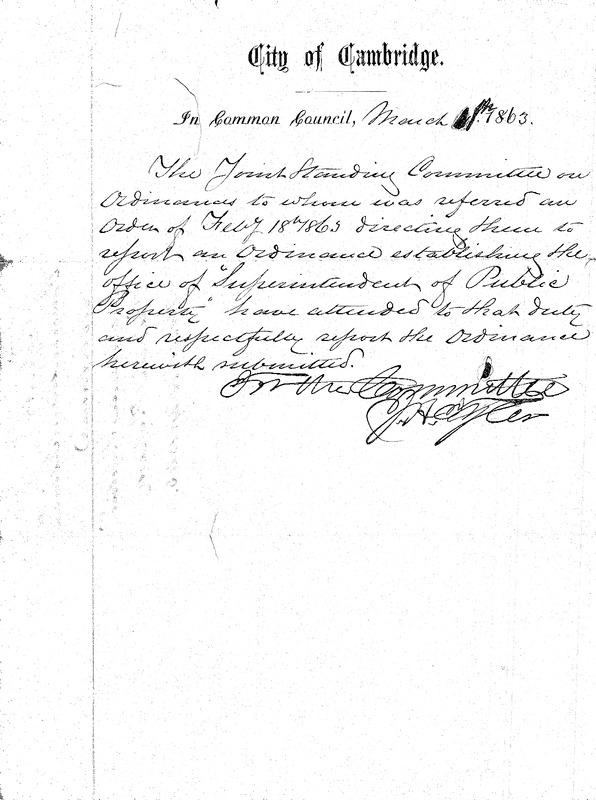 City of Cambridge.
In Common Council, March 11th 1863.
The Joint Standing Committee on
Ordinances to whom was referred an
Order of Feby 18th 1863 directing them to
report an Ordinance establishing the
office of "Superintendent of Public
Property" have attended to that duty
and respectfully report the Ordinance
herewith submitted.
For the Committee
J. H. Tyler